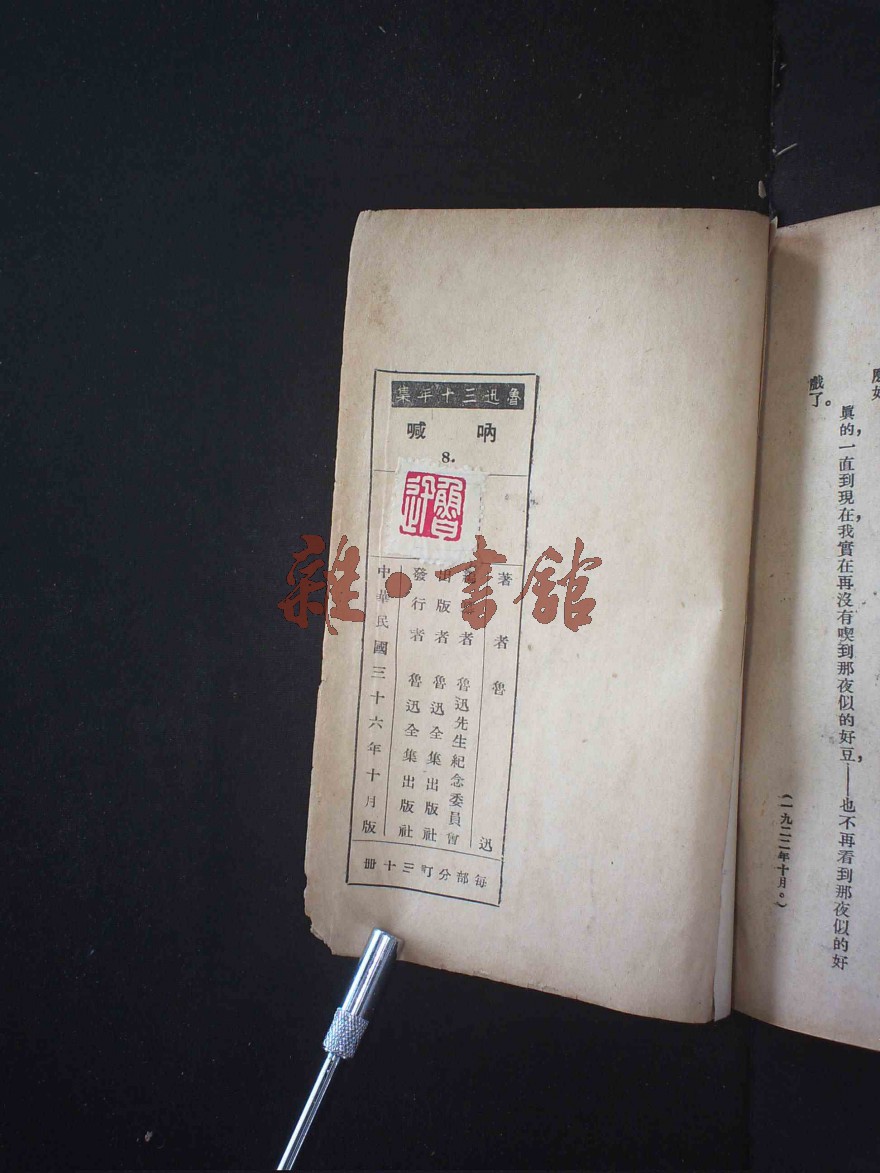 麼好
戲了。
真的，一直到現在，我實在再沒有喫到那夜似的好豆，——也不再看到那夜似的好
（一九二二年十月。）
魯迅三十年集
吶喊
8.
魯迅
著者 魯迅
編纂者 魯迅先生紀念委員會
出版者 魯迅全集出版社
發行者 魯迅全集出版社
中華民國三十六年十月版
每部分訂三十冊
雜·書館